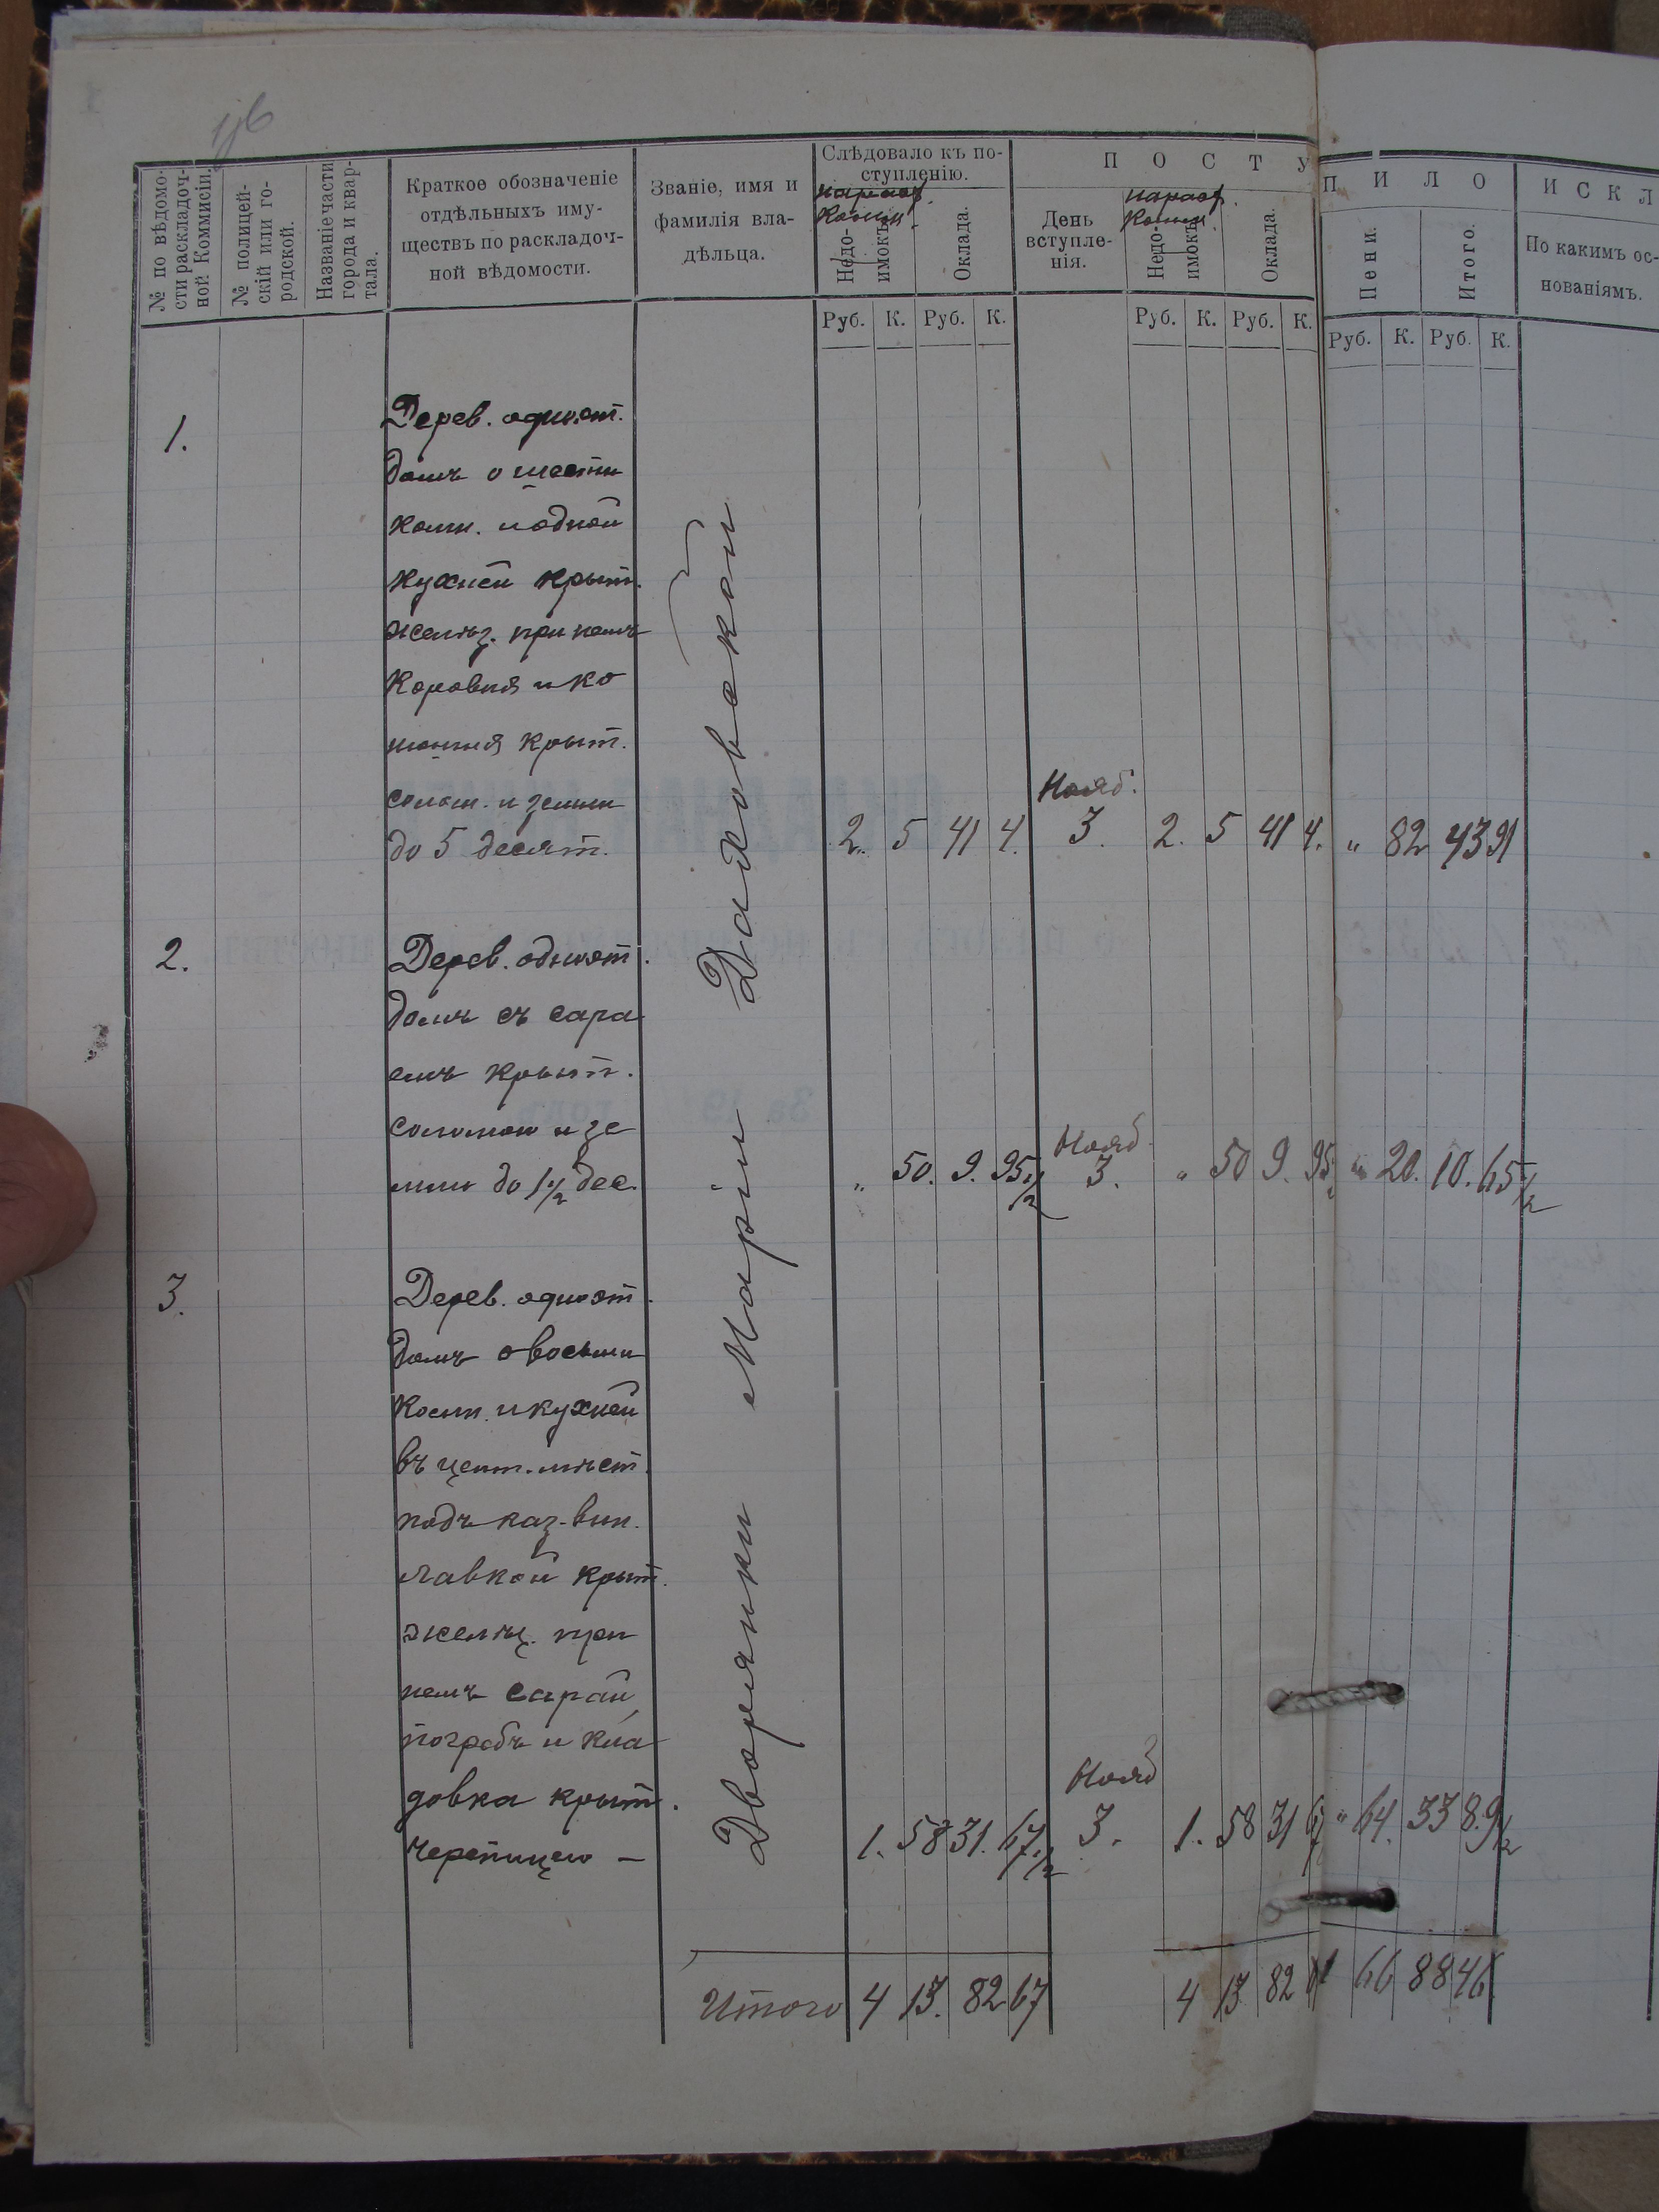 № по вѣдомо-
сти раскладоч-
ной Коммисіи.
№ полицей-
скій или го-
родской.
Названіе части
города и квар-
тала.
Краткое обозначеніе
отдѣльныхъ иму-
ществъ по раскладоч-
ной вѣдомости.
Званіе, имя и
фамилія вла-
дѣльца.
Слѣдовало къ по-
ступленію.
Недо-
имокъ
Оклада.
П О С Т У
П И Л О
День
вступле-
нія.
Недо-
имокъ
Оклада.
Пени.
Итого.
И С К Л
По какимъ ос-
нованіямъ.
Руб. К. Руб. К. Руб. К. Руб. К. Руб. К. Руб. К.
1.
Дерев. одноэт.
домъ о шести
комн. и одной
кухней крыт.
желѣз. при немъ
коровня и ко
нюшня крыт.
солом. и земли
до 5 десят.
2. 5 41 4. Нояб. 3. 2. 5 41 4. " 82 43 91
2.
Дерев. одноэт.
домъ съ сара
емъ крыт.
соломою и зе
мли до 1 1/2 дес.
" 50. 9. 95 1/2 Нояб 3. " 50 9. 95 " 20. 10. 65 1/2
3.
Дерев. одноэт.
домъ о восьми
комн. и кухней
въ цент. мѣст.
подъ каз. вин.
лавкой крыт.
желѣз. при
немъ сарай,
погребъ и кла
довка крыт.
черепицею —
1. 58 31. 67 1/2 Нояб 3. 1. 58 31 67 " 64. 33 89 1/2
Дворянки Маріи Дадковской
Итого 4 13. 82 67 4 13 82 67 1 66 88 46